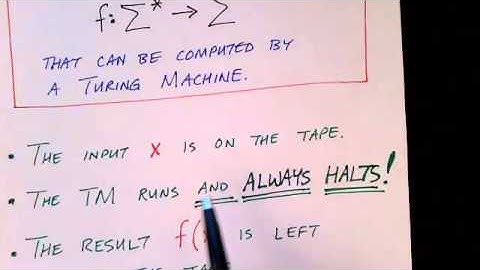 f: Σ* → Σ
THAT CAN BE COMPUTED BY
A TURING MACHINE.
• THE INPUT x IS ON THE TAPE.
• THE TM RUNS AND ALWAYS HALTS!
• THE RESULT f( IS LEFT